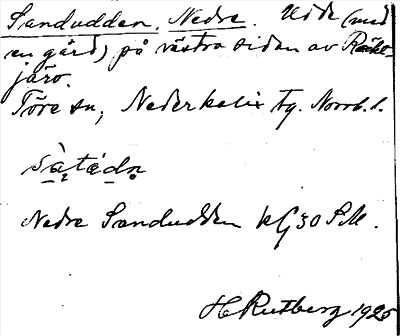 Sandudden, Nedre. Udde (med
en gård) på västra sidan av Räkt-
järv.
Töre sn, Nederkalix tg. Norrb. l.
Nedre Sandudden kG30 SM.
H Rutberg 1925